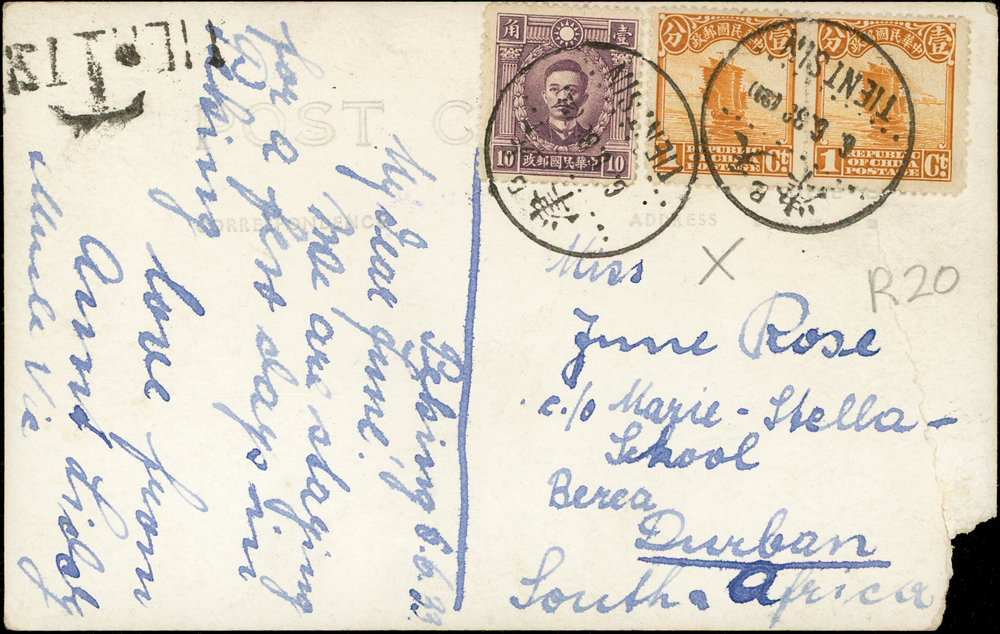 TIENTSIN
T
POST C
CORRESPONDENCE
ADDRESS
角 壹
10 政郵國民華中 10
分 政郵國民華中 壹
1 REPUBLIC OF CHINA POSTAGE Ct.
分 政郵國民華中 壹
1 REPUBLIC OF CHINA POSTAGE Ct.
TIENTSIN
TIENTSIN
Peking 6.6.
My dear June,
We are staying
for a few days in
Peking
love from
Aunt
Uncle Vic
Miss
June Rose
c./o Marie-Stella-
School
Berea
Durban
South Africa
X
R20